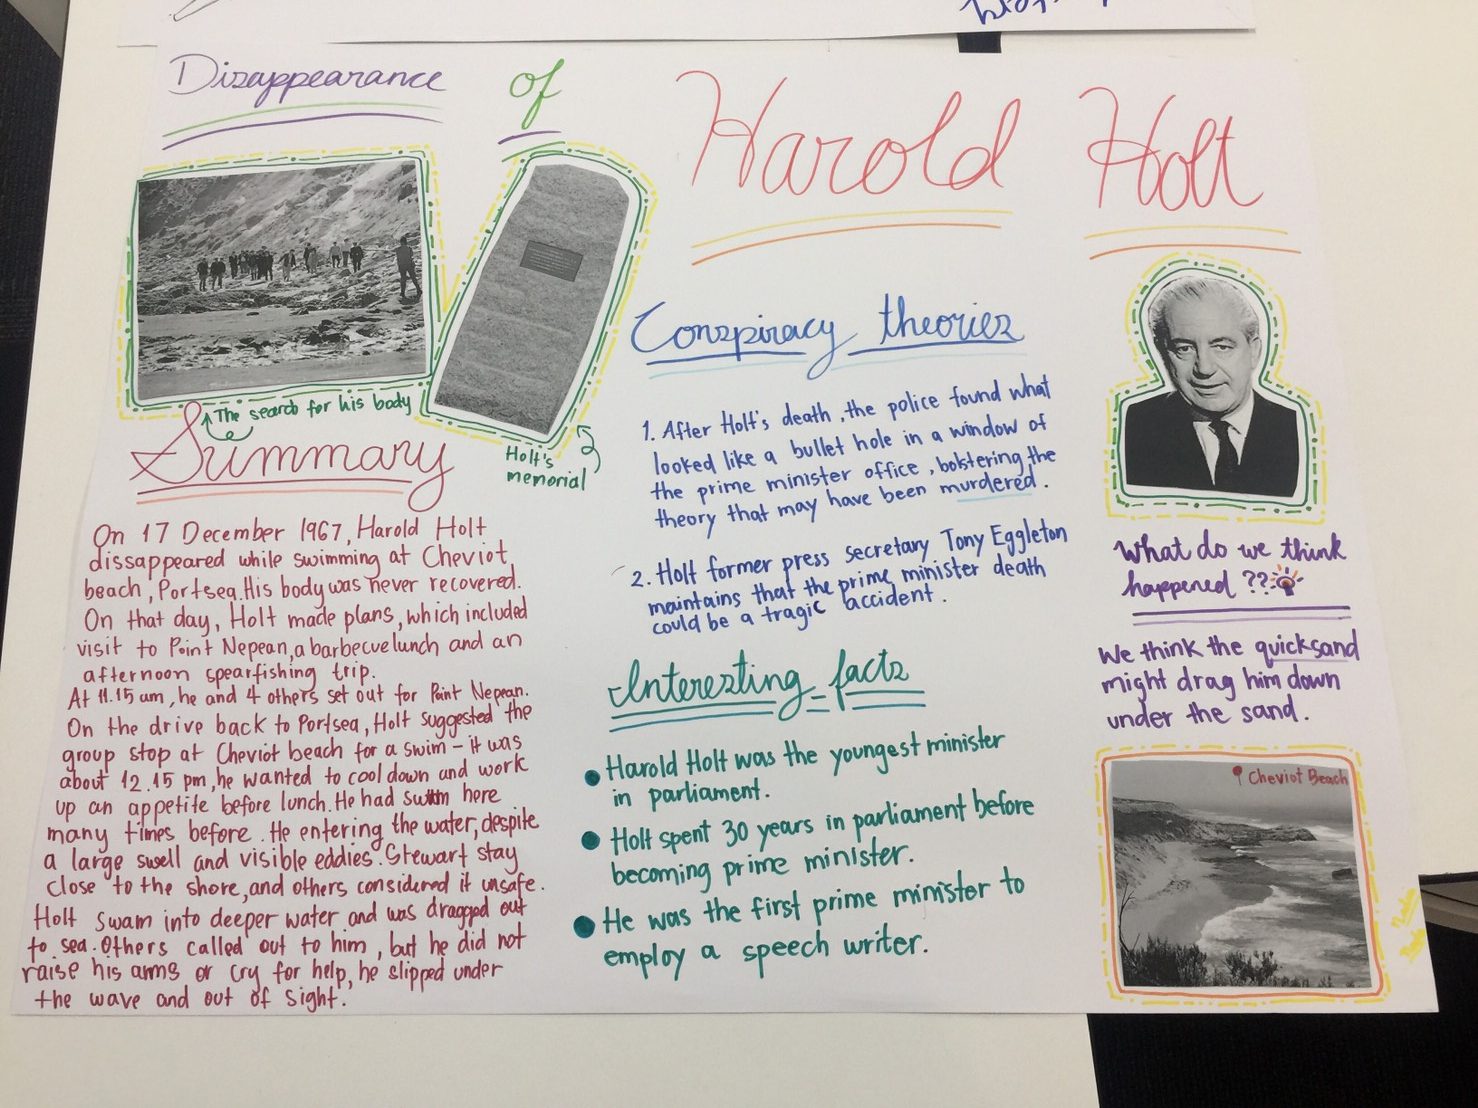 Disappearance of Harold Holt
The search for his body
Holt's
memorial
Summary
On 17 December 1967, Harold Holt
dissappeared while swimming at Cheviot
beach, Portsea. His body was never recovered.
On that day, Holt made plans, which included
visit to Point Nepean, a barbecue lunch and an
afternoon spearfishing trip.
At 11.15 am, he and 4 others set out for Point Nepean.
On the drive back to Portsea, Holt suggested the
group stop at Cheviot beach for a swim – it was
about 12.15 pm, he wanted to cool down and work
up an appetite before lunch. He had swum here
many times before. He entering the water, despite
a large swell and visible eddies. Stewart stay
close to the shore, and others considered it unsafe.
Holt swam into deeper water and was dragged out
to sea. Others called out to him, but he did not
raise his arms or cry for help, he slipped under
the wave and out of sight.
Conspiracy theories
1. After Holt's death, the police found what
looked like a bullet hole in a window of
the prime minister office, bolstering the
theory that may have been murdered.
2. Holt former press secretary Tony Eggleton
maintains that the prime minister death
could be a tragic accident.
Interesting facts
Harold Holt was the youngest minister
in parliament.
Holt spent 30 years in parliament before
becoming prime minister.
He was the first prime minister to
employ a speech writer.
What do we think
happened ??
We think the quicksand
might drag him down
under the sand.
Cheviot Beach